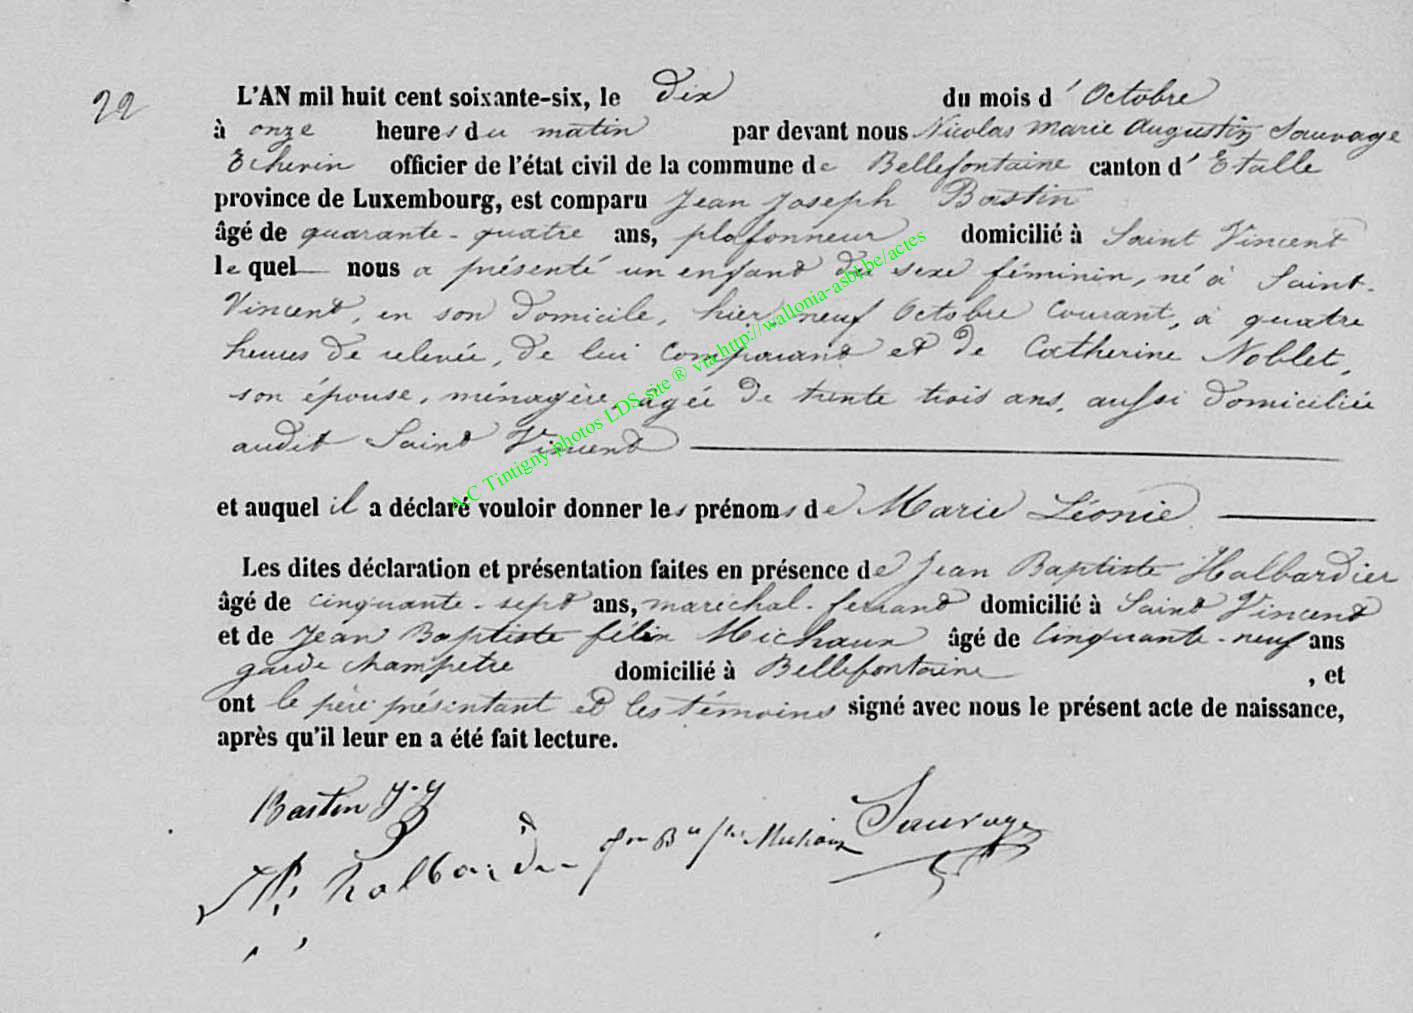 22
L'AN mil huit cent soixante-six, le Dix du mois d' Octobre
à onze heures du matin par devant nous Nicolas Marie Augustin Sauvage
Echevin officier de l'état civil de la commune de Bellefontaine canton d' Etalle
province de Luxembourg, est comparu Jean Joseph Bastin
âgé de quarante-quatre ans, plafonneur domicilié à Saint Vincent
lequel nous a présenté un enfant du sexe féminin, né à Saint-
Vincent, en son domicile, hier, neuf Octobre Courant, à quatre
heures de relevée, de lui Comparant et de Catherine Noblet,
son épouse, ménagère, agée de trente trois ans, aussi domiciliée
audit Saint Vincent
et auquel il a déclaré vouloir donner les prénoms de Marie Léonie
Les dites déclaration et présentation faites en présence de Jean Baptiste Halbardier
âgé de cinquante-sept ans, maréchal-ferrand domicilié à Saint Vincent
et de Jean Baptiste félix Michaux âgé de Cinquante-neuf ans
garde champetre domicilié à Bellefontaine, et
ont le père présentant et les témoins signé avec nous le présent acte de naissance,
après qu'il leur en a été fait lecture.
Bastin J. J
Sauvage
halbardier
A.C Tintigny photos LDS site ® via http://wallonia-asbl.be/actes